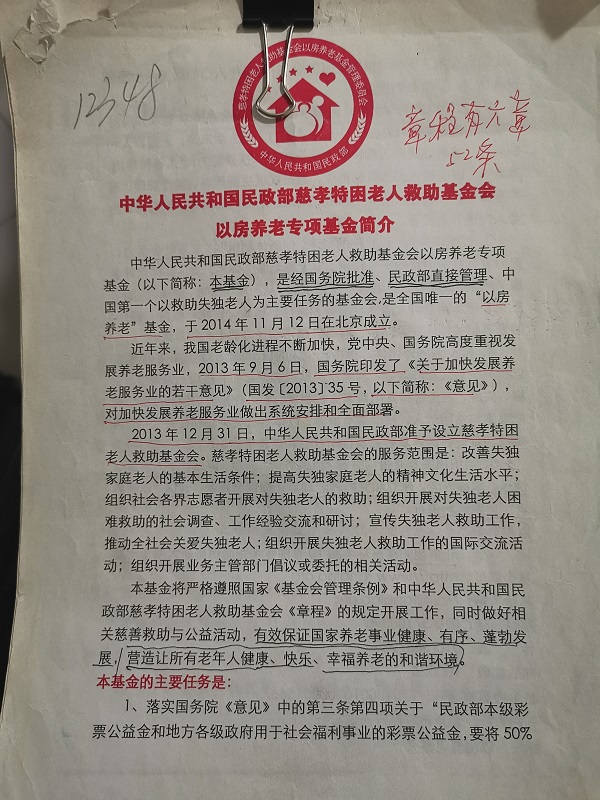 慈孝特困老人救助基金会以房养老基金管理委员会
中华人民共和国民政部
12348
章程有六章
52条
中华人民共和国民政部慈孝特困老人救助基金会
以房养老专项基金简介
中华人民共和国民政部慈孝特困老人救助基金会以房养老专项
基金（以下简称：本基金），是经国务院批准、民政部直接管理、中
国第一个以救助失独老人为主要任务的基金会,是全国唯一的“以房
养老”基金，于 2014 年 11 月 12 日在北京成立。
近年来，我国老龄化进程不断加快，党中央、国务院高度重视发
展养老服务业，2013 年 9 月 6 日，国务院印发了《关于加快发展养
老服务业的若干意见》（国发〔2013〕35 号，以下简称：《意见》），
对加快发展养老服务业做出系统安排和全面部署。
2013 年 12 月 31 日，中华人民共和国民政部准予设立慈孝特困
老人救助基金会。慈孝特困老人救助基金会的服务范围是：改善失独
家庭老人的基本生活条件；提高失独家庭老人的精神文化生活水平；
组织社会各界志愿者开展对失独老人的救助；组织开展对失独老人困
难救助的社会调查、工作经验交流和研讨；宣传失独老人救助工作，
推动全社会关爱失独老人；组织开展失独老人救助工作的国际交流活
动；组织开展业务主管部门倡议或委托的相关活动。
本基金将严格遵照国家《基金会管理条例》和中华人民共和国民
政部慈孝特困老人救助基金会《章程》的规定开展工作，同时做好相
关慈善救助与公益活动，有效保证国家养老事业健康、有序、蓬勃发
展，营造让所有老年人健康、快乐、幸福养老的和谐环境。
本基金的主要任务是：
1、落实国务院《意见》中的第三条第四项关于“民政部本级彩
票公益金和地方各级政府用于社会福利事业的彩票公益金,要将 50%